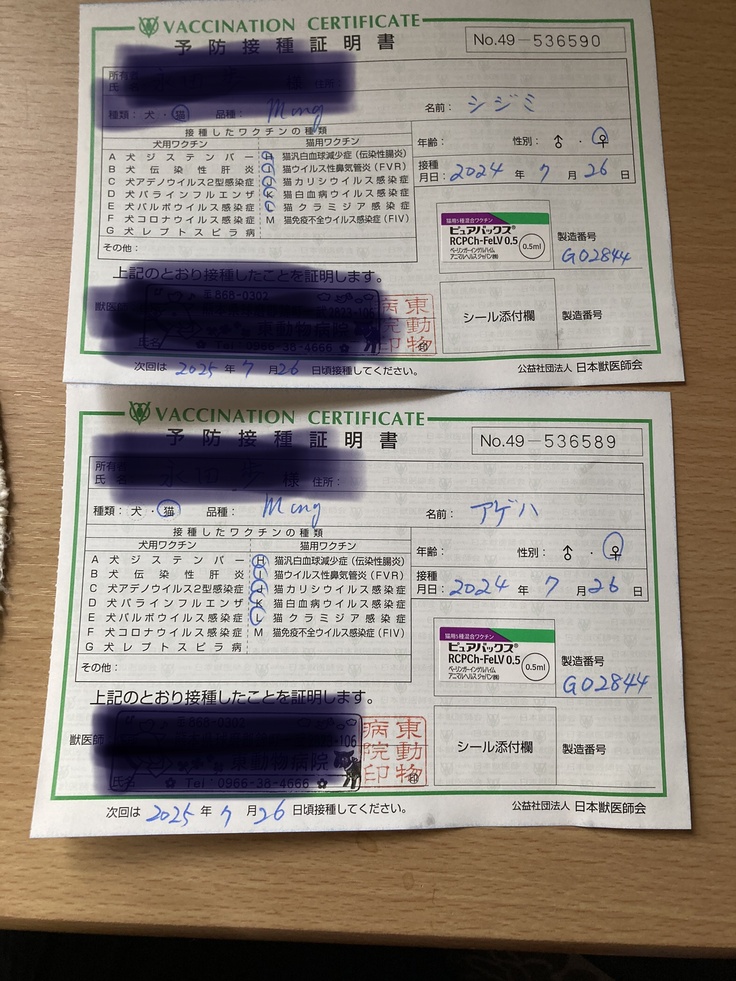 VACCINATION CERTIFICATE
予防接種証明書
No.49-536590
所有者
氏名 様 住所:
種類: 犬・猫 品種: Ming 名前: シジミ
接種したワクチンの種類
犬用ワクチン 猫用ワクチン
年齢: 性別: ♂・♀
A 犬ジステンパー H 猫汎白血球減少症(伝染性腸炎)
B 犬伝染性肝炎 I 猫ウイルス性鼻気管炎(FVR)
接種月日: 2024年7月26日
C 犬アデノウイルス2型感染症 J 猫カリシウイルス感染症
D 犬パラインフルエンザ K 猫白血病ウイルス感染症
E 犬パルボウイルス感染症 L 猫クラミジア感染症
F 犬コロナウイルス感染症 M 猫免疫不全ウイルス感染症(FIV)
G 犬レプトスピラ病
その他:
猫用5種混合ワクチン
ピュアバックス®
RCPCh-FeLV 0.5
0.5ml
ベーリンガーインゲルハイム
アニマルヘルスジャパン(株)
製造番号
G02844
上記のとおり接種したことを証明します。
獣医師
〒868-0302
東動物病院
氏名 Tel 0966-38-4666
東動物病院印
シール添付欄 製造番号
次回は2025年7月26日頃接種してください。
公益社団法人 日本獣医師会
VACCINATION CERTIFICATE
予防接種証明書
No.49-536589
所有者
氏名 様 住所:
種類: 犬・猫 品種: Ming 名前: アゲハ
接種したワクチンの種類
犬用ワクチン 猫用ワクチン
年齢: 性別: ♂・♀
A 犬ジステンパー H 猫汎白血球減少症(伝染性腸炎)
B 犬伝染性肝炎 I 猫ウイルス性鼻気管炎(FVR)
接種月日: 2024年7月26日
C 犬アデノウイルス2型感染症 J 猫カリシウイルス感染症
D 犬パラインフルエンザ K 猫白血病ウイルス感染症
E 犬パルボウイルス感染症 L 猫クラミジア感染症
F 犬コロナウイルス感染症 M 猫免疫不全ウイルス感染症(FIV)
G 犬レプトスピラ病
その他:
猫用5種混合ワクチン
ピュアバックス®
RCPCh-FeLV 0.5
0.5ml
ベーリンガーインゲルハイム
アニマルヘルスジャパン(株)
製造番号
G02844
上記のとおり接種したことを証明します。
獣医師
〒868-0302
東動物病院
氏名 Tel 0966-38-4666
東動物病院印
シール添付欄 製造番号
次回は2025年7月26日頃接種してください。
公益社団法人 日本獣医師会